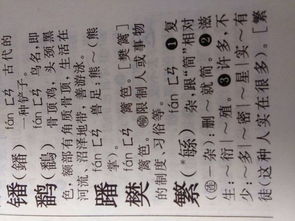 𫔍(鐇) fán ㄈㄢˊ 古代的
一种铲子。
鹤(鷭) fán ㄈㄢˊ 鸟名,即
骨顶鸡,头颈黑
色,额部有角质骨顶,生活在
河流、沼泽地带,善游泳。
蹯 fán ㄈㄢˊ 兽足:熊~(熊
掌)。
樊 fán ㄈㄢˊ 篱笆。[樊篱]
篱笆。㊁限制人或事物
的制度、习俗等。
繁(*緐) fán ㄈㄢˊ ❶复
杂,跟“简”相对
(-杂):删~就简。❷滋
生:~衍|~殖。❸许多,不
少:~多|~密|~星|实~有
徒(这种人实在很多)。[繁